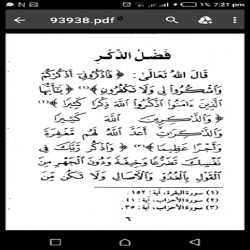 7:21 pm
93938.pdf
فَضْلُ الذِّكْرِ
قَالَ اللهُ تَعَالَىٰ: ﴿ فَاذْكُرُونِي أَذْكُرْكُمْ
وَاشْكُرُوا لِي وَلَا تَكْفُرُونِ ﴾(١) ﴿ يَا أَيُّهَا
الَّذِينَ ءَامَنُوا اذْكُرُوا اللهَ ذِكْرًا كَثِيرًا ﴾(٢)
﴿ وَالذَّاكِرِينَ اللهَ كَثِيرًا
وَالذَّاكِرَاتِ أَعَدَّ اللهُ لَهُم مَّغْفِرَةً
وَأَجْرًا عَظِيمًا ﴾(٣) ﴿ وَاذْكُر رَّبَّكَ فِي
نَفْسِكَ تَضَرُّعًا وَخِيفَةً وَدُونَ الْجَهْرِ مِنَ
الْقَوْلِ بِالْغُدُوِّ وَالْآصَالِ وَلَا تَكُن مِّنَ
(١) سورة البقرة، آية: ١٥٢.
(٢) سورة الأحزاب، آية: ٤١.
(٣) سورة الأحزاب، آية: ٣٥.
٦